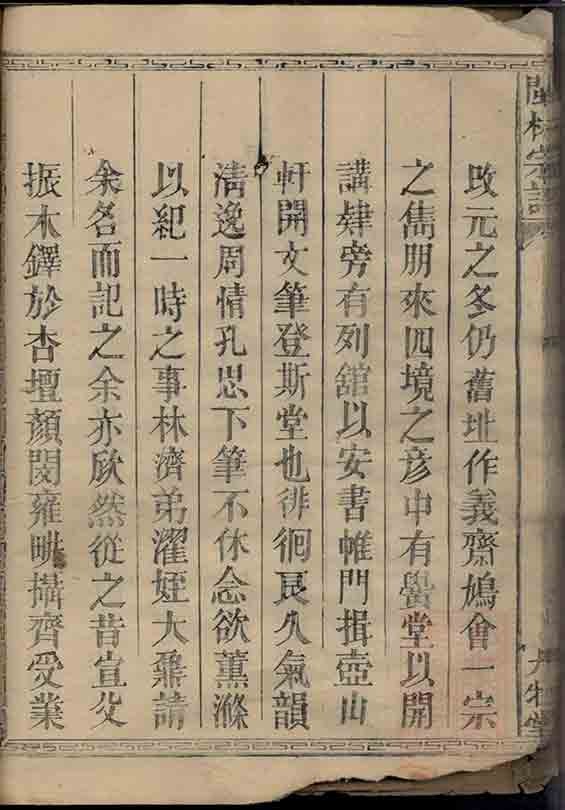 閩林宗譜
改元之冬仍舊址作義齋鳩會一宗
之雋朋來四境之彥中有黌堂以開
講肄旁有列舘以安書帷門揖壺山
軒開文筆登斯堂也徘徊良久氣韻
清逸周情孔思下筆不休念欲薰滌
以紀一時之事林濟弟濯姪大鼐請
余名而記之余亦欣然從之昔宣父
振木鐸於杏壇顏閔雍畊摳齊受業